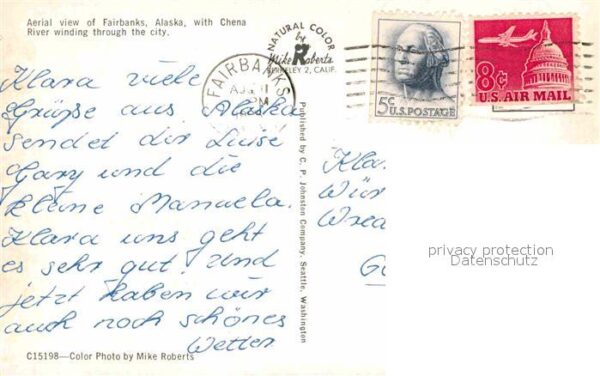 Aerial view of Fairbanks, Alaska, with Chena
River winding through the city.
NATURAL COLOR
by
Mike Roberts
BERKELEY 2, CALIF.
FAIRBANKS
PM
5c
U.S. POSTAGE
8c
U.S. AIR MAIL
Klara viele
Grüße aus Alaska
sendet dir Luise
Gary und die
kleine Manuela.
Klara uns geht
es sehr gut. Und
jetzt haben wir
auch noch schönes
Wetter
Published by C. P. Johnston Company, Seattle, Washington
Kla
Wür
privacy protection
Datenschutz
C15198—Color Photo by Mike Roberts